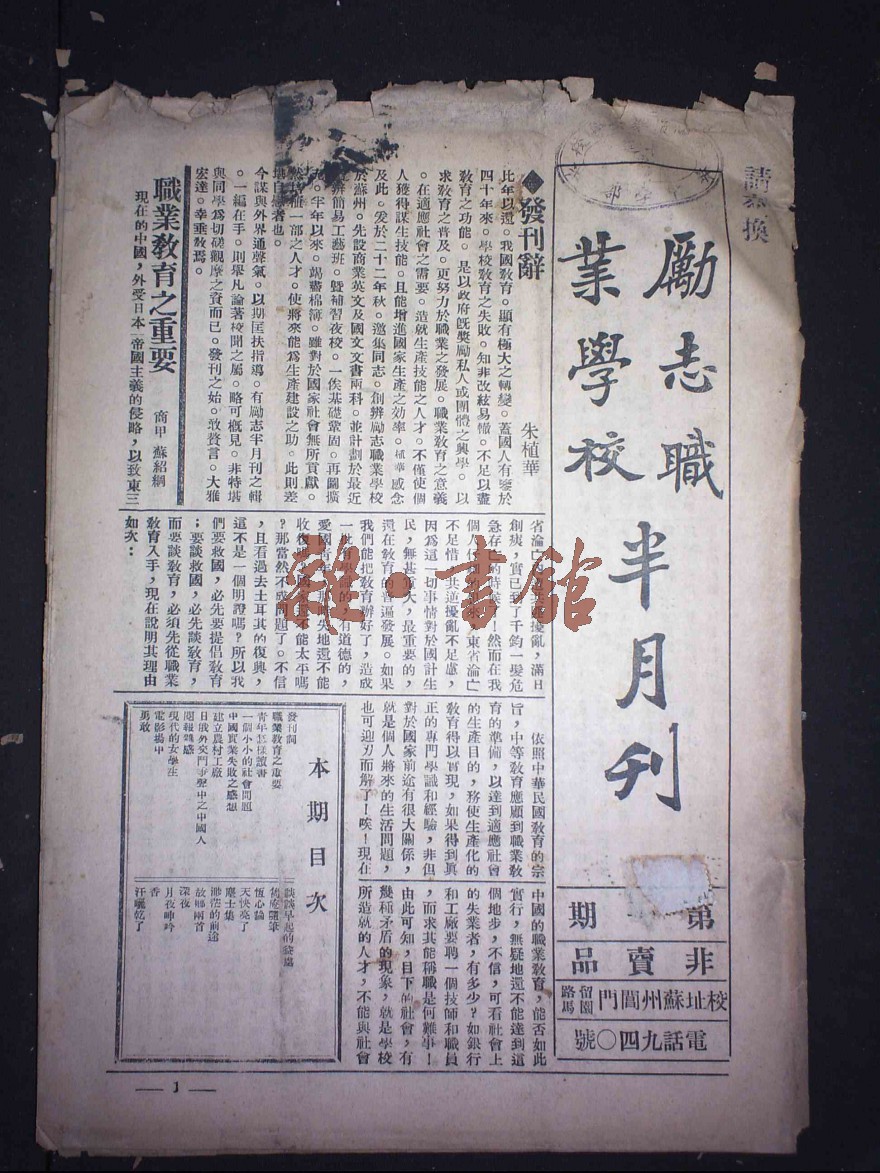 請交換
勵志職
業學校
半月刊
第一期
非賣品
校址蘇州閶門留園馬路
電話九四〇號
發刊辭
朱植華
比年以還。我國教育。顯有極大之轉變。蓋國人有鑒於
四十年來。學校教育之失敗。知非改絃易轍。不足以盡
教育之功能。是以政府既奬勵私人或團體之興學。以
求教育之普及。更努力於職業之發展。職業教育之意義
。在適應社會之需要。造就生產技能之人才。不僅使個
人獲得謀生技能。且能增進國家生產之效率。植華感念
及此。爰於二十二年秋。邀集同志。創辦勵志職業學校
於蘇州。先設商業英文及國文文書兩科。並計劃於最近
辦簡易工藝班。暨補習夜校。一俟基礎鞏固。再圖擴
。半年以來。竭盡棉薄。雖對於國家社會無所貢獻。
一部之人才。使將來能爲生產建設之助。此則差
堪自慰者也。
今謀與外界通聲氣。以期匡扶指導。有勵志半月刊之輯
。一編在手。則舉凡論著校聞之屬。略可概見。非特堪
與同學爲切磋觀摩之資而已。發刊之始。敢贅言。大雅
宏達。幸垂教焉。
職業教育之重要
商甲 蘇紹綱
現在的中國，外受日本帝國主義的侵略，以致東三
省淪亡，擾亂，滿目
創痍，實已到了千鈞一髮危
急存亡的時候了！然而在我
個人東省淪亡
不足惜，共逆擾亂不足慮，
因爲這一切事情對於國計生
民，無甚重大，最重要的，
還在教育的普遍發展。如果
我們能把教育辦好了，造成
一有道德的，
愛國青年，失地還不能
收復嗎？國家還不能太平嗎
？那當然不成問題了。不信
，且看過去土耳其的復興，
這不是一個明證嗎？所以我
們要救國，必先要提倡教育
；要談救國，必先談教育，
而要談教育，必須先從職業
教育入手，現在說明其理由
如次：
依照中華民國教育的宗
旨，中等教育應顧到職業教
育的準備，以達到適應社會
的生產目的，務使生產化的
教育得以實現，如果得到眞
正的專門學識和經驗，非但
對於國家前途有很大關係，
就是個人將來的生活問題，
也可迎刃而解了！唉！現在
中國的職業教育，能否如此
實行，無疑地還不能達到這
個地步，不信，可看社會上
的失業者，有多少？如銀行
和工廠要聘一個技師和職員
，而求其能稱職是何難事！
由此可知，目下的社會，有
幾種矛盾的現象，就是學校
所造就的人才，不能與社會
本期目次
發刊詞
職業教育之重要
青年怎樣讀書
一個小小的社會問題
中國實業失敗之感想
建立農村工廠
日俄外交鬥爭聲中之中國人
閱報雜感
現代的女學生
電影場中
勇敢
談談早起的益處
恆心論
天快亮了
塵土集
渺茫的前途
故鄉兩首
深夜
月夜呻吟
香
汗曬乾了
— 1 —
雜·書館